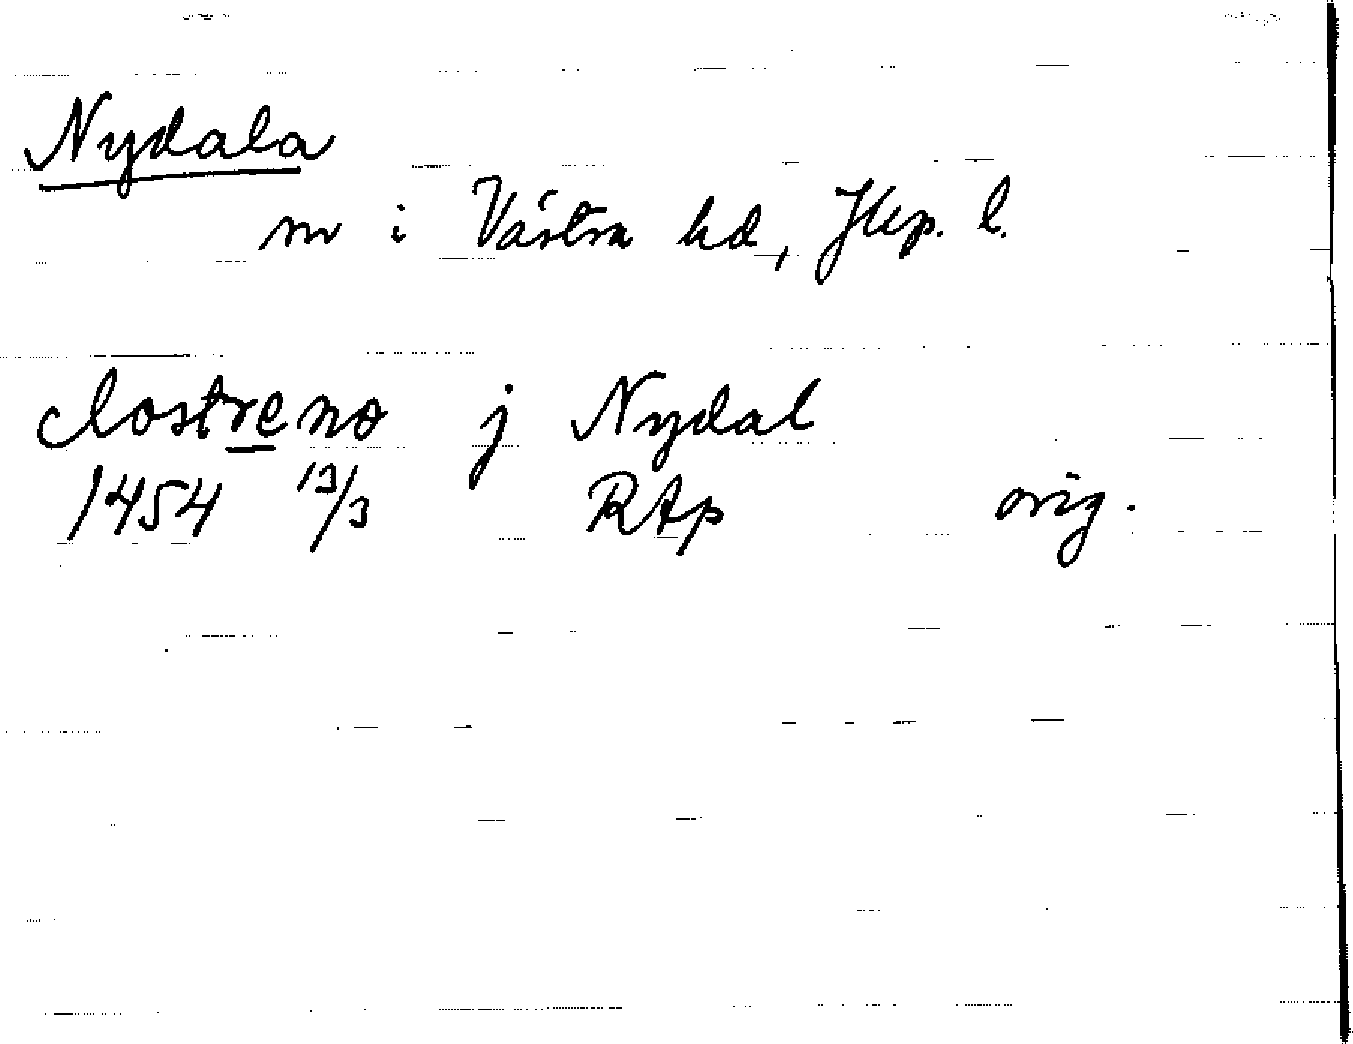 Nydala
sn i Västra hd, Jkp. l.
clostreno j Nydal
1454 13/3 RAp orig.